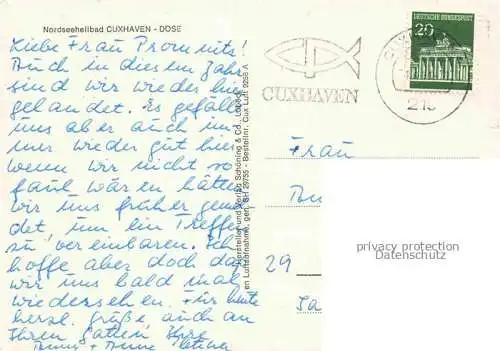 Nordseeheilbad CUXHAVEN - DÖSE
Liebe Frau Promnits!
Auch in diesem Jahr
sind wir wieder hier
gelandet. Es gefällt
uns aber auch im
mer wieder gut hier
wenn wir nicht so
faul wären hätten
wir uns früher gemel
det, um ein Treffen
zu vereinbaren. Ich
hoffe aber doch daß
wir uns bald mal
wiedersehen. Für heute
herzl. Grüße auch an
Ihren Gatten, Ihre
Hersteller und Verlag Schöning & Co., Lübeck
en Luftaufnahme, gen. SH 29755 - Bestellnr. Cux Luft 9298 A
DEUTSCHE BUNDESPOST
20
CUXHAVEN
219
Frau
29
privacy protection
Datenschutz